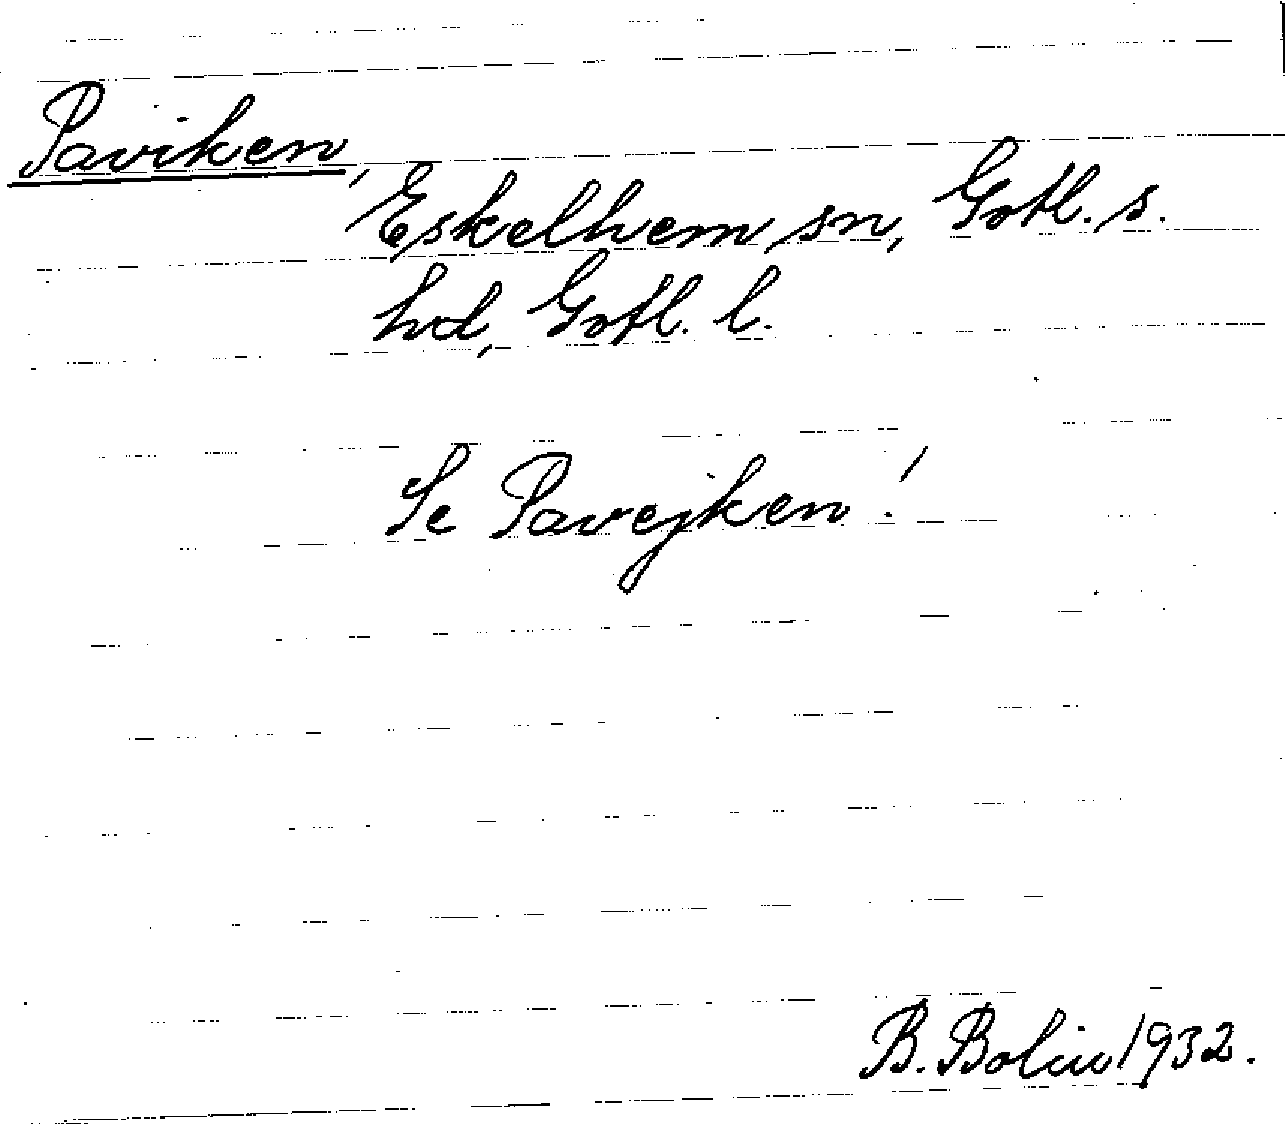 Paviken,
Eskelhem sn, Gotl. s.
hd, Gotl. l.
Se Pavejken!
B. Bolin 1932.